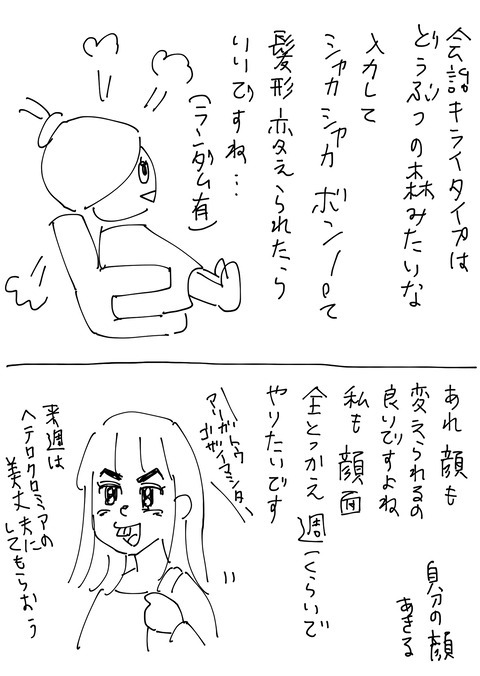 会話キライタイプは
どうぶつの森みたいな
入力して
シャカシャカ ボンッって
髪形変えられたら
いいですね…
(ランダム有)
あれ 顔も
変えられるの
良いですよね
私も 顔面
全とっかえ 週1くらいで
やりたいです
自分の顔
あきる
アリガトウ
ゴザイマシタ、
来週は
ヘテロクロミアの
美丈夫に
してもらおう